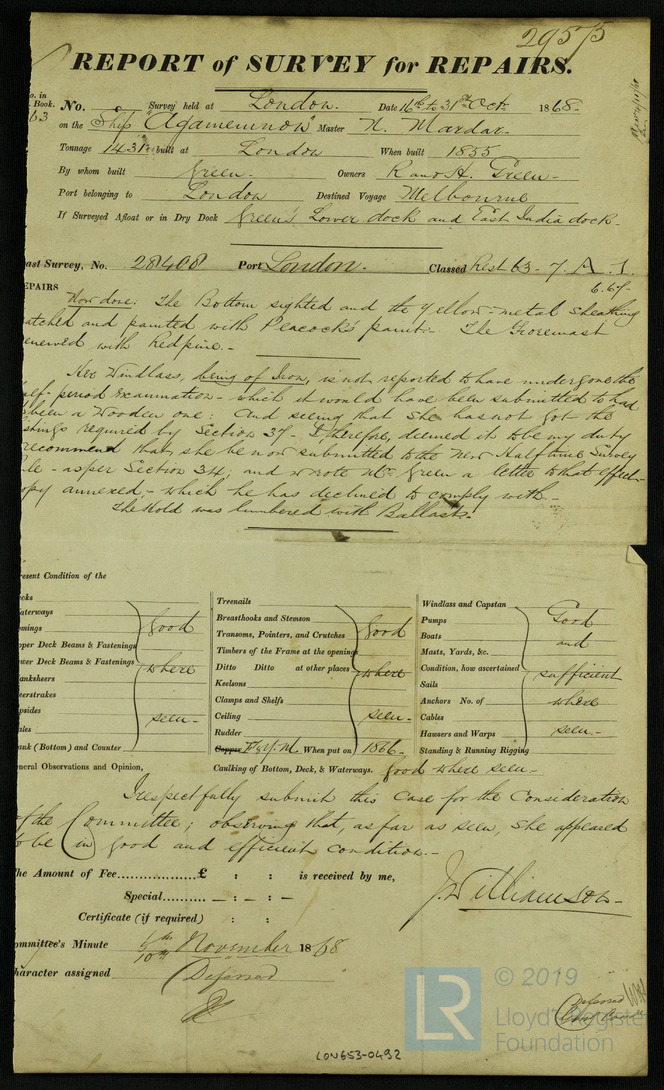 29575
REPORT of SURVEY for REPAIRS.
o. in
Book. No. Survey held at London. Date 16th to 31st Oct. 1868.
63 on the Ship "Agamemnon" Master N. Mardar.
Tonnage 1431 built at London When built 1855
By whom built Green. Owners R and H. Green.
Port belonging to London Destined Voyage Melbourne
If Surveyed Afloat or in Dry Dock Green's Lower dock and East India dock.
ast Survey, No. 28408 Port London. Classed Rest 63 - 7. A. 1.
6.67.
EPAIRS Now done: The Bottom sighted and the Yellow-metal sheathing
atched and painted with Peacock's paint. The Foremast
enewed with Red pine.
Her Windlass, being of Iron, is not reported to have undergone the
alf-period Examination - which it would have been submitted to had
been a Wooden one: And seeing that she has not got the
required by Section 37 - I therefore, deemed it to be my duty
recommend that she be now submitted to the New Halftime Survey
le - as per Section 34; and wrote Mr. Green a letter to that effect
opy annexed, - which he has declined to comply with. -
The Hold was lumbered with Ballast.
resent Condition of the
cks
aterways
mings
pper Deck Beams & Fastenings
wer Deck Beams & Fastenings
anksheers
eerstrakes
psides
ales
ank (Bottom) and Counter
good
where
seen -
Treenails
Breasthooks and Stemson
Transoms, Pointers, and Crutches
Timbers of the Frame at the openings
Ditto Ditto at other places
Keelsons
Clamps and Shelfs
Ceiling
Rudder
Copper F & Y.M. When put on 1866.
good
where
seen -
Windlass and Capstan
Pumps
Boats
Masts, Yards, &c.
Condition, how ascertained
Sails
Anchors No. of
Cables
Hawsers and Warps
Standing & Running Rigging
Good
and
sufficient
where
seen -
neral Observations and Opinion, Caulking of Bottom, Deck, & Waterways. good where seen -
I respectfully submit this case for the Consideration
of the Committee; observing that, as far as seen, she appeared
to be in good and efficient condition. -
he Amount of Fee...............£ : : is received by me,
Special......... - : - : -
Certificate (if required) : :
J. Williamson
ommittee's Minute 6th 10th November 1868
haracter assigned Deferred
Deferred
© 2019
LR
Lloyd's Register
Foundation
LON653-0492